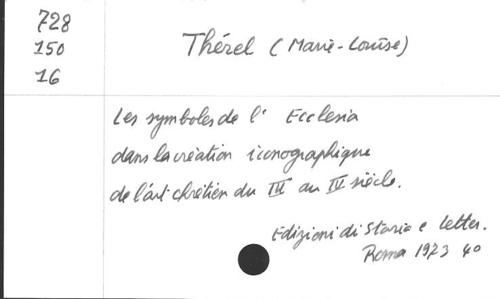 728
150
16
Thérel (Marie-Louise)
Les symboles de l' Ecclesia
dans la création iconographique
de l'art chrétien du III au IV siècle.
Edizioni di Storia e Letter.
Roma 1973 40